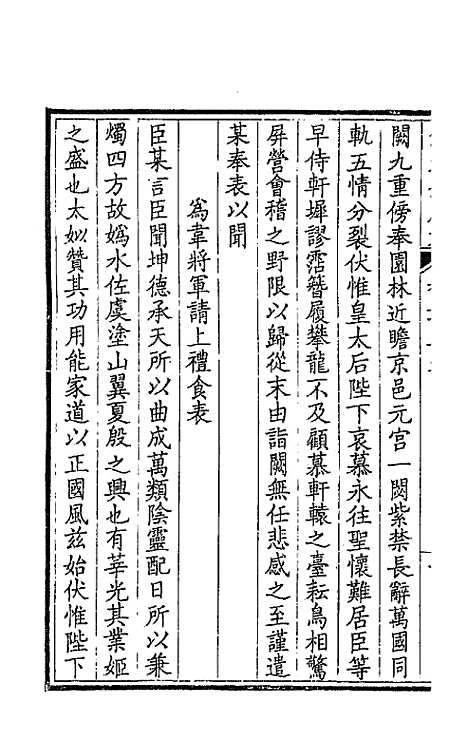 闕九重傍奉園林近瞻京邑元宮一閟紫禁長辭萬國同
軌五情分裂伏惟皇太后陛下哀慕永往聖懷難居臣等
早侍軒墀謬霑簪履攀龍不及顧慕軒轅之臺耘鳥相驚
屏營會稽之野限以歸從末由詣闕無任悲感之至謹遣
某奉表以聞
爲韋將軍請上禮食表
臣某言臣聞坤德承天所以曲成萬類陰靈配日所以兼
燭四方故嬀水佐虞塗山翼夏殷之興也有莘光其業姬
之盛也太姒贊其功用能家道以正國風兹始伏惟陛下